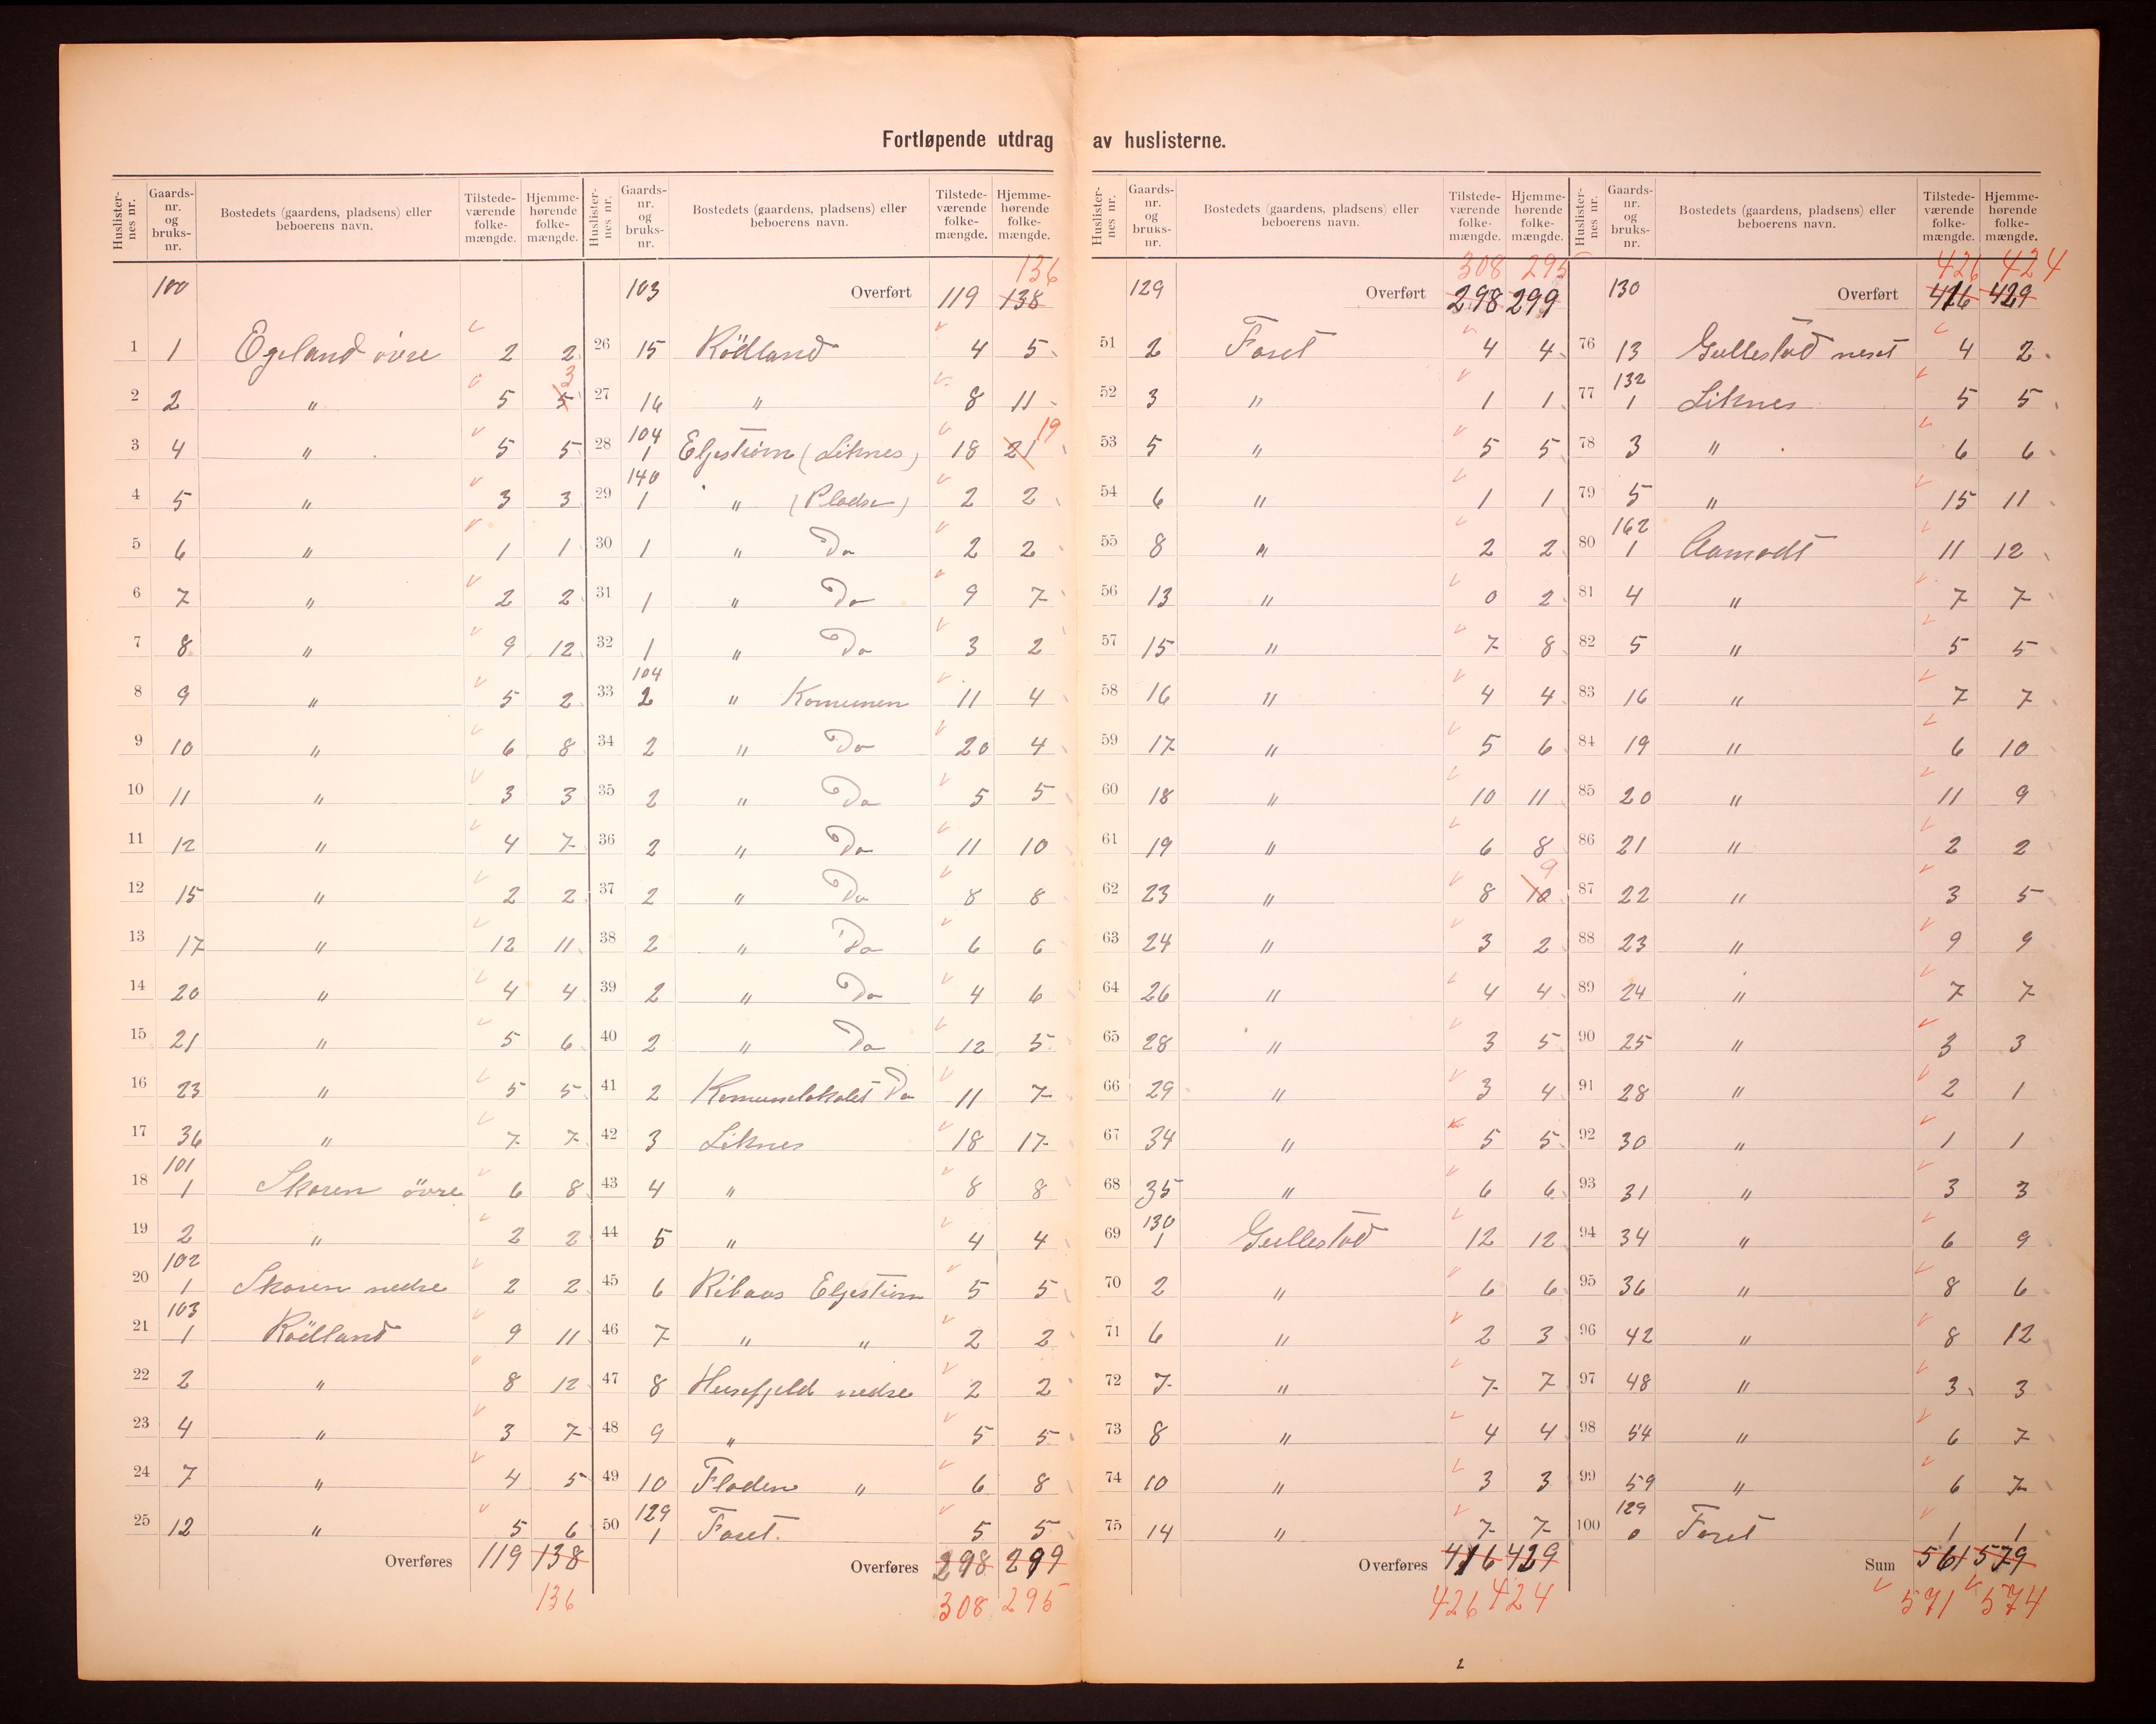 Fortløpende utdrag av huslisterne.
Huslisternes nr. Gaards-nr. og bruks-nr. Bostedets (gaardens, pladsens) eller beboerens navn. Tilstedeværende folkemængde. Hjemmehørende folkemængde.
100
1 1 Egeland övre 2 2
2 2 " 5 5 3
3 4 " 5 5
4 5 " 3 3
5 6 " 1 1
6 7 " 2 2
7 8 " 9 12
8 9 " 5 2
9 10 " 6 8
10 11 " 3 3
11 12 " 4 7
12 15 " 2 2
13 17 " 12 11
14 20 " 4 4
15 21 " 5 6
16 23 " 5 5
17 36 " 7 7
18 101 1 Skoren övre 6 8
19 2 " 2 2
20 102 1 Skoren nedre 2 2
21 103 1 Rödland 9 11
22 2 " 8 12
23 4 " 3 7
24 7 " 4 5
25 12 " 5 6
Overføres 119 138
136
Huslisternes nr. Gaards-nr. og bruks-nr. Bostedets (gaardens, pladsens) eller beboerens navn. Tilstedeværende folkemængde. Hjemmehørende folkemængde.
136
103 Overført 119 138
26 15 Rödland 4 5
27 16 " 8 11
28 104 1 Eljestrøm (Liknes) 18 21 19
29 140 1 " (Pladse) 2 2
30 1 " Do 2 2
31 1 " Do 9 7
32 1 " Do 3 2
33 104 2 " Komunen 11 4
34 2 " Do 20 4
35 2 " Do 5 5
36 2 " Do 11 10
37 2 " Do 8 8
38 2 " Do 6 6
39 2 " Do 4 6
40 2 " Do 12 5
41 2 Komunelokalet Do 11 7
42 3 Liknes 18 17
43 4 " 8 8
44 5 " 4 4
45 6 Ribaas Eljestrøm 5 5
46 7 " " 2 2
47 8 Husefjeld nedre 2 2
48 9 " 5 5
49 10 Floden " 6 8
50 129 1 Foset. 5 5
Overføres 298 299
308 295
Huslisternes nr. Gaards-nr. og bruks-nr. Bostedets (gaardens, pladsens) eller beboerens navn. Tilstedeværende folkemængde. Hjemmehørende folkemængde.
308 295
129 Overført 298 299
51 2 Foset 4 4
52 3 " 1 1
53 5 " 5 5
54 6 " 1 1
55 8 " 2 2
56 13 " 0 2
57 15 " 7 8
58 16 " 4 4
59 17 " 5 6
60 18 " 10 11
61 19 " 6 8
62 23 " 8 10 9
63 24 " 3 2
64 26 " 4 4
65 28 " 3 5
66 29 " 3 4
67 34 " 5 5
68 35 " 6 6
69 130 1 Gullestad 12 12
70 2 " 6 6
71 6 " 2 3
72 7 " 7 7
73 8 " 4 4
74 10 " 3 3
75 14 " 7 7
Overføres 416 429
426 424
Huslisternes nr. Gaards-nr. og bruks-nr. Bostedets (gaardens, pladsens) eller beboerens navn. Tilstedeværende folkemængde. Hjemmehørende folkemængde.
426 424
130 Overført 416 429
76 13 Gullestad neset 4 2
77 132 1 Liknes 5 5
78 3 " 6 6
79 5 " 15 11
80 162 1 Aamodt 11 12
81 4 " 7 7
82 5 " 5 5
83 16 " 7 7
84 19 " 6 10
85 20 " 11 9
86 21 " 2 2
87 22 " 3 5
88 23 " 9 9
89 24 " 7 7
90 25 " 3 3
91 28 " 2 1
92 30 " 1 1
93 31 " 3 3
94 34 " 6 9
95 36 " 8 6
96 42 " 8 12
97 48 " 3 3
98 54 " 6 7
99 59 " 6 7
100 129 0 Foset 1 1
Sum 561 579
571 574
2